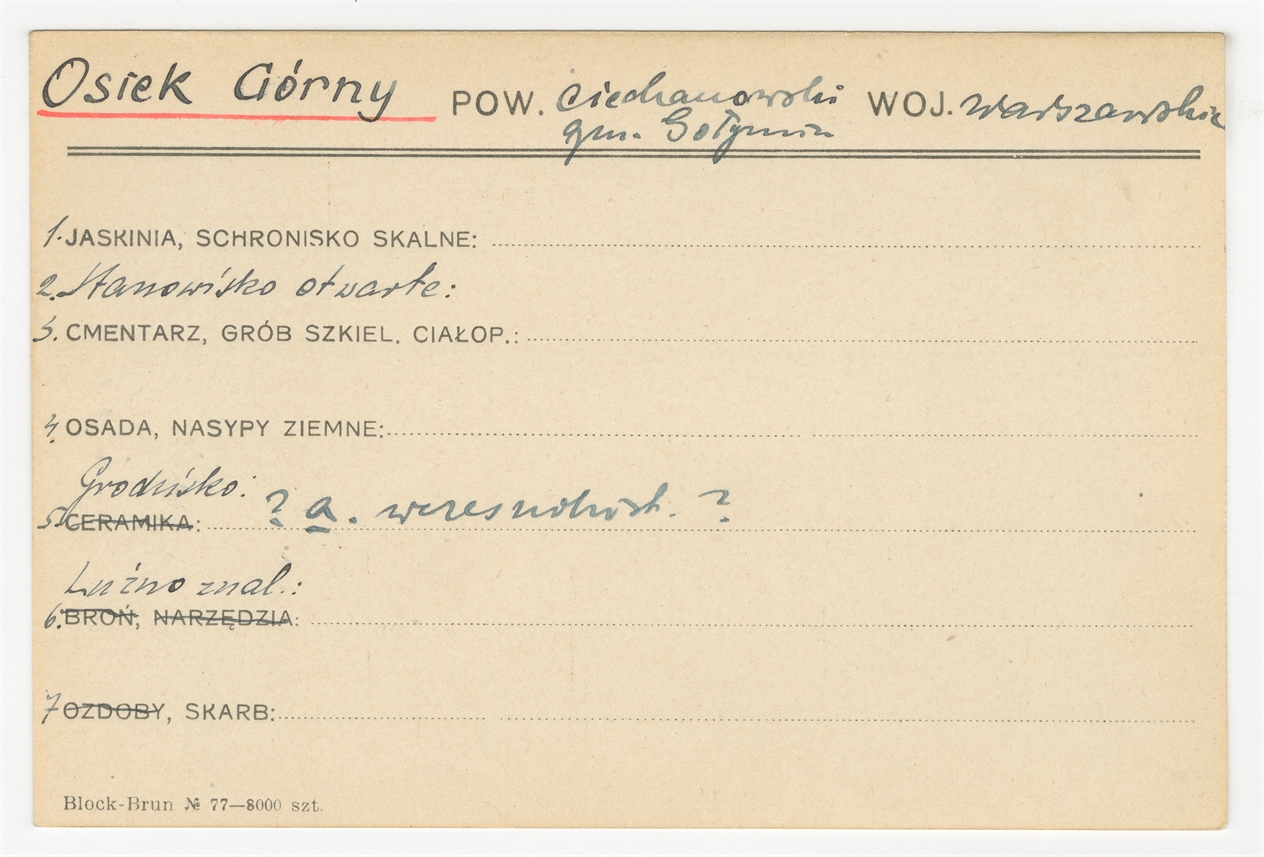 Osiek Górny POW. ciechanowski WOJ. warszawskie
gm. Gołymin
1. JASKINIA, SCHRONISKO SKALNE:
2. Stanowisko otwarte:
3. CMENTARZ, GRÓB SZKIEL. CIAŁOP.:
4. OSADA, NASYPY ZIEMNE:
Grodzisko:
5. CERAMIKA: ? a. wczesnohist. ?
Luźno znal.:
6. BROŃ, NARZĘDZIA:
7 OZDOBY, SKARB:
Block-Brun № 77—8000 szt.